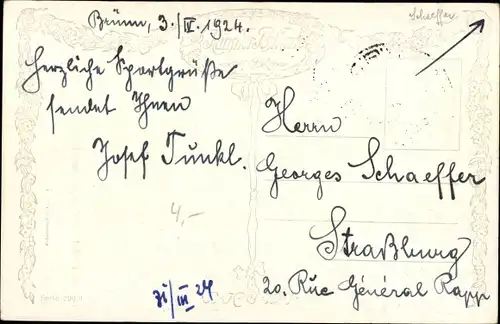 Schaeffer
Brünn, 3./IV. 1924.
Herzliche Sportgrüße
sendet Ihnen
Josef Tunkl.
Herrn
Georges Schaeffer
Straßburg
20. Rue Général Rapp
4,-
31/III 24
Serie 200